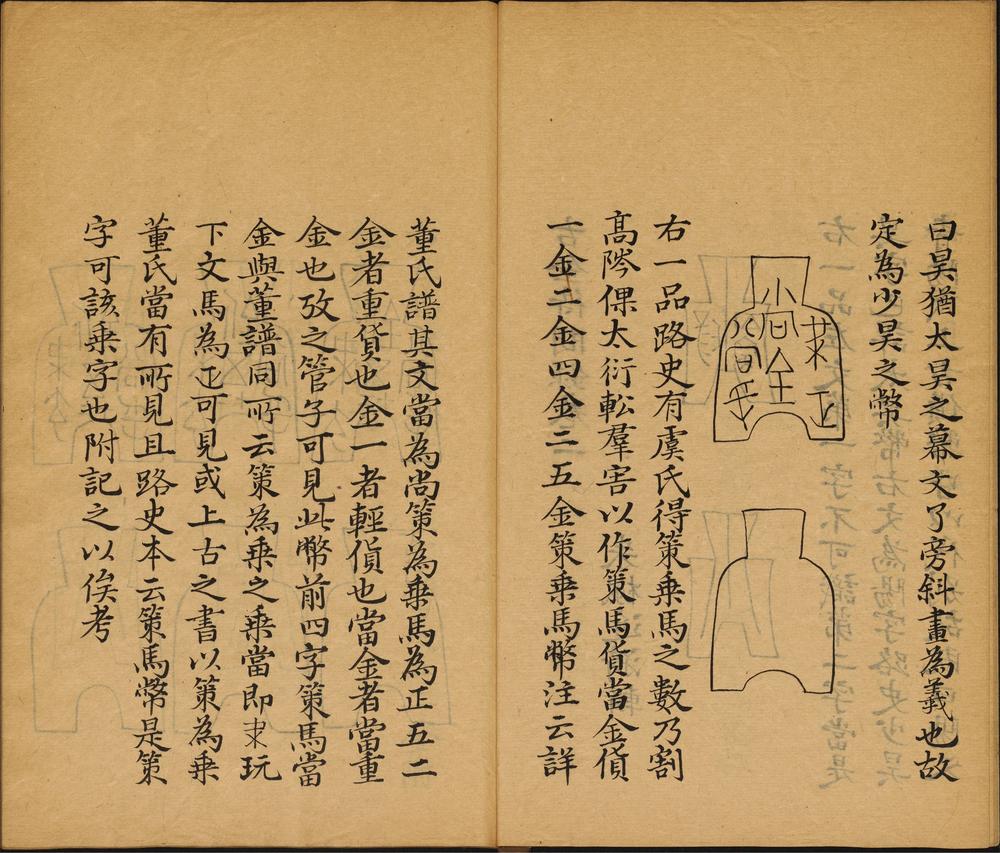 曰昊猶太昊之幕文了旁斜畫為義也故
定為少昊之幣
右一品路史有虞氏得策乗馬之數乃割
髙陊倮太衍䡆羣害以作策馬貨當金貨
一金二金四金二五金策乗馬幣注云詳
董氏譜其文當為尚策為乗馬為正五二
金者重貨也金一者輕貨也當金者當重
金也攷之管子可見此幣前四字策馬當
金與董譜同所云策為乗之乗當即𠁁玩
下文馬為正可見或上古之書以策為乗
董氏當有所見且路史本云策馬幣是策
字可該乗字也附記之以俟考